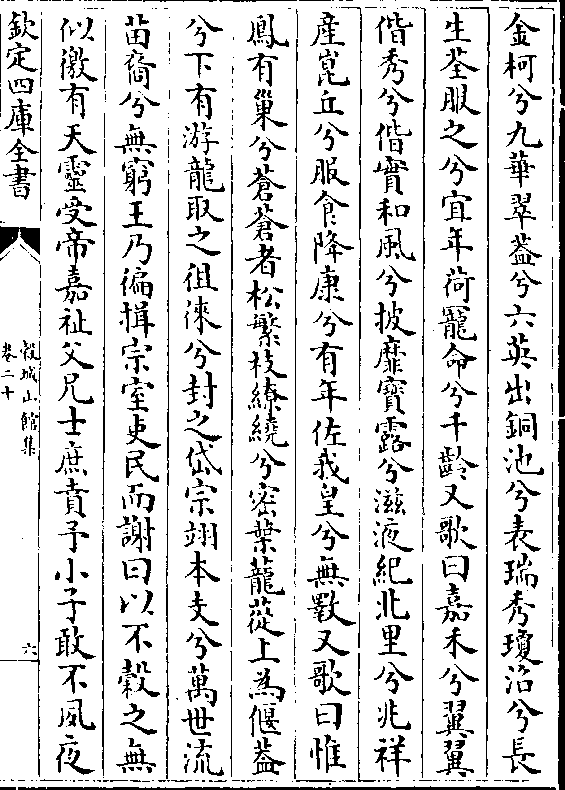 金柯兮九華翠葢兮六英出銅池兮表瑞秀瓊沼兮長
生荃服之兮宜年荷寵命兮千齡又歌曰嘉禾兮翼翼
偕秀兮偕實和風兮披靡寶露兮滋液紀北里兮兆祥
産崑丘兮服食降康兮有年佐我皇兮無斁又歌曰惟
鳳有巢兮蒼蒼者松繁枝繚繞兮密葉蘢蓯上為偃葢
兮下有游龍取之徂徠兮封之岱宗翊本支兮萬世流
苗裔兮無窮王乃徧揖宗室吏民而謝曰以不穀之無
似徼有天靈受帝嘉祉父兄士庶賁予小子敢不夙夜
欽定四庫全書
榖城山館集
卷二十
六